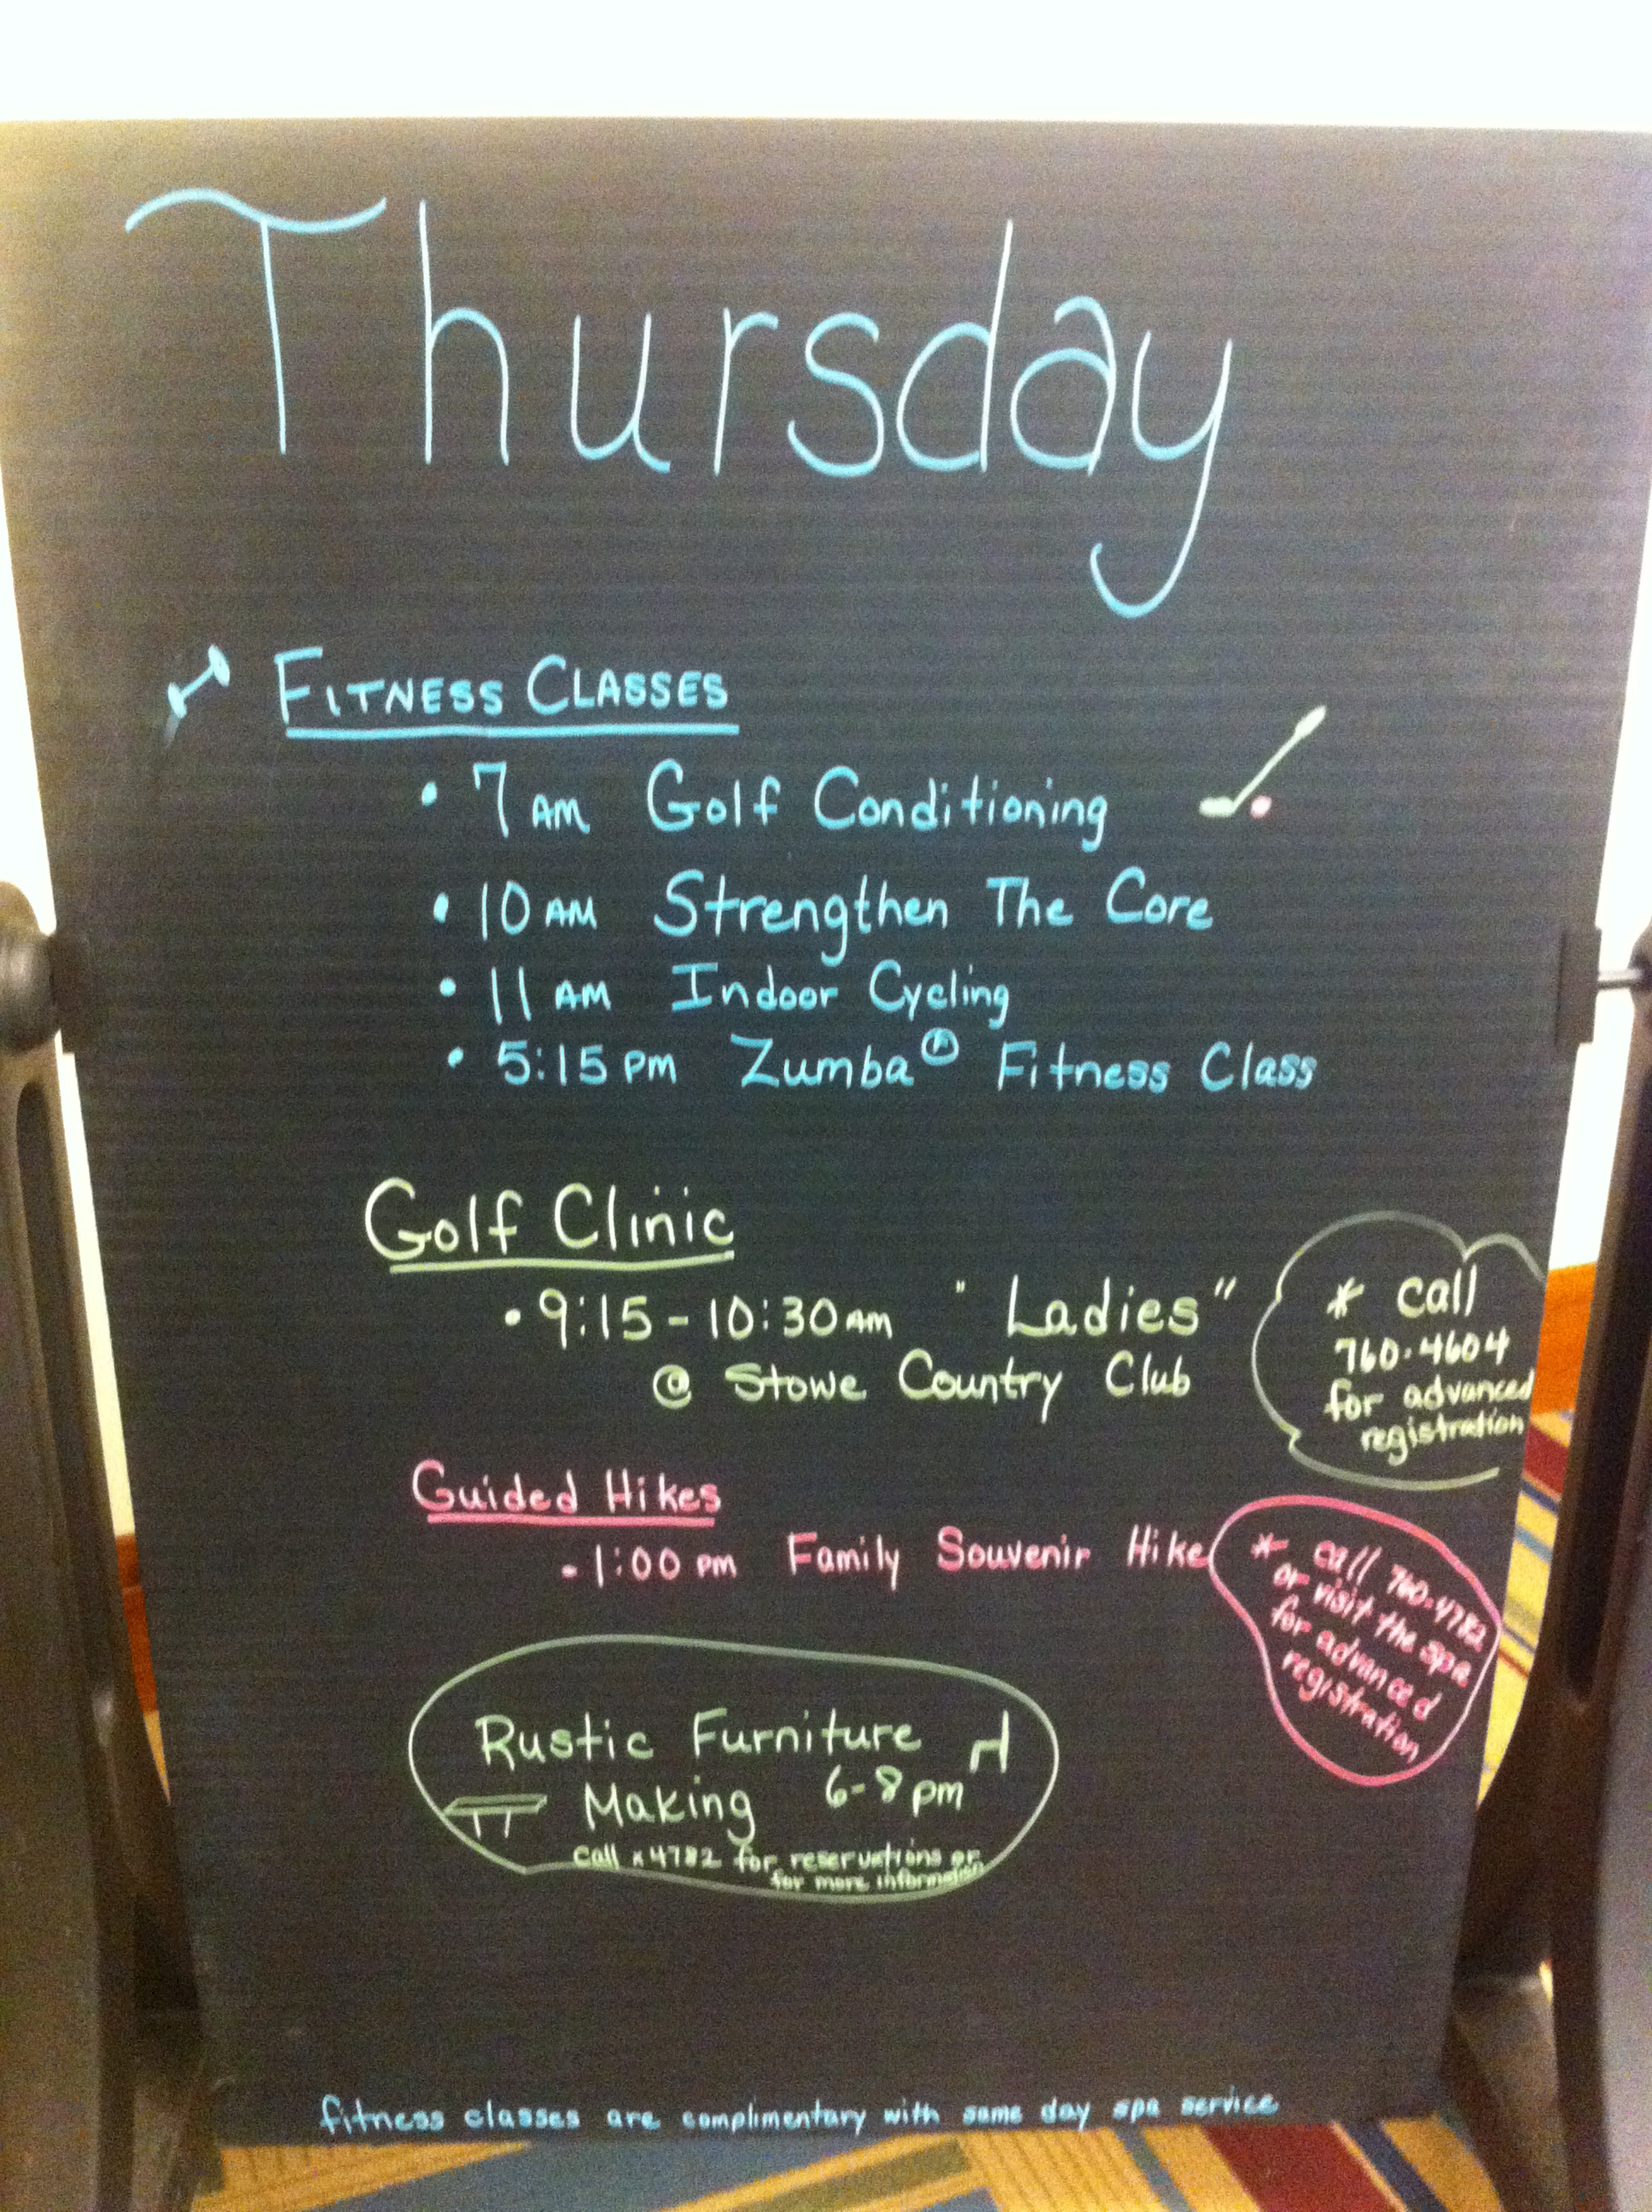 Thursday
FITNESS CLASSES
• 7 AM Golf Conditioning
• 10 AM Strengthen The Core
• 11 AM Indoor Cycling
• 5:15 PM Zumba® Fitness Class
Golf Clinic
• 9:15 - 10:30 AM "Ladies"
@ Stowe Country Club
* call
760-4604
for advanced
registration
Guided Hikes
• 1:00 PM Family Souvenir Hike
* call 760-4782
or visit the spa
for advanced
registration
Rustic Furniture
Making 6-8 pm
call x4782 for reservations or
for more information
fitness classes are complimentary with same day spa service